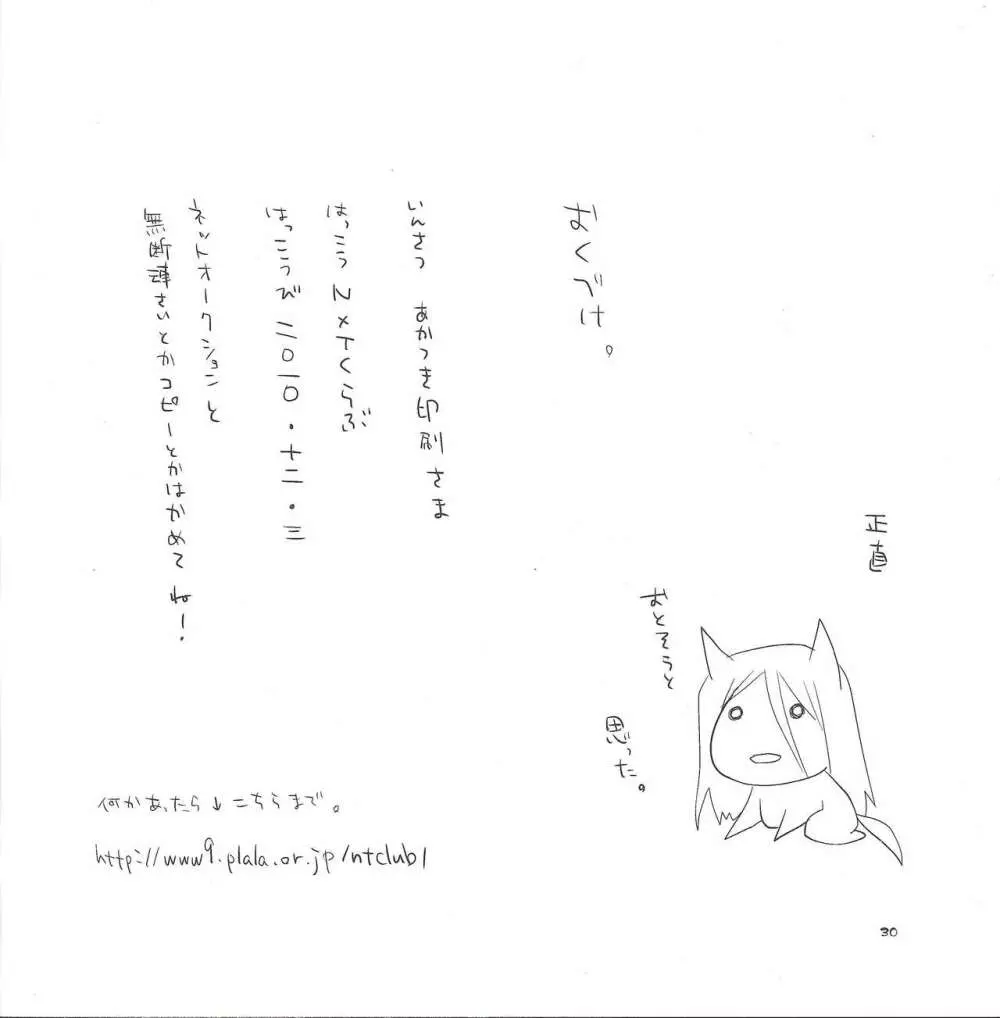 おくづけ。
いんさつ　あかつき印刷さま
はっこう　N×Tくらぶ
はっこうび　二〇一〇・十二・三
ネットオークションと
無断転さいとかコピーとかはかめてね！
正直
おとそうと
思った。
何かあったら↓こちらまで。
http://www9.plala.or.jp/ntclub1
30